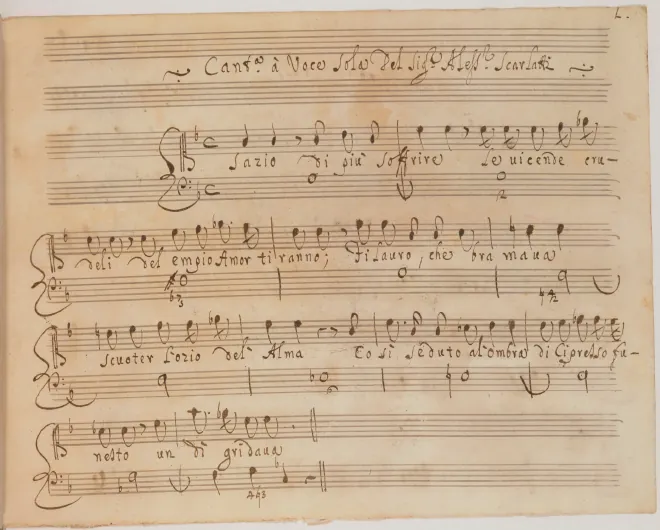 L.
Cant.ª à Voce Sola Del Sig.r Aless.º Scarlatti
Sazio di più soffrire le vicende cru-
deli del empio Amor tiranno; Filauro, che bramava
scuoter l'ozio del Alma Co sì seduto al ombra di Cipresso fu-
nesto un dì gridava